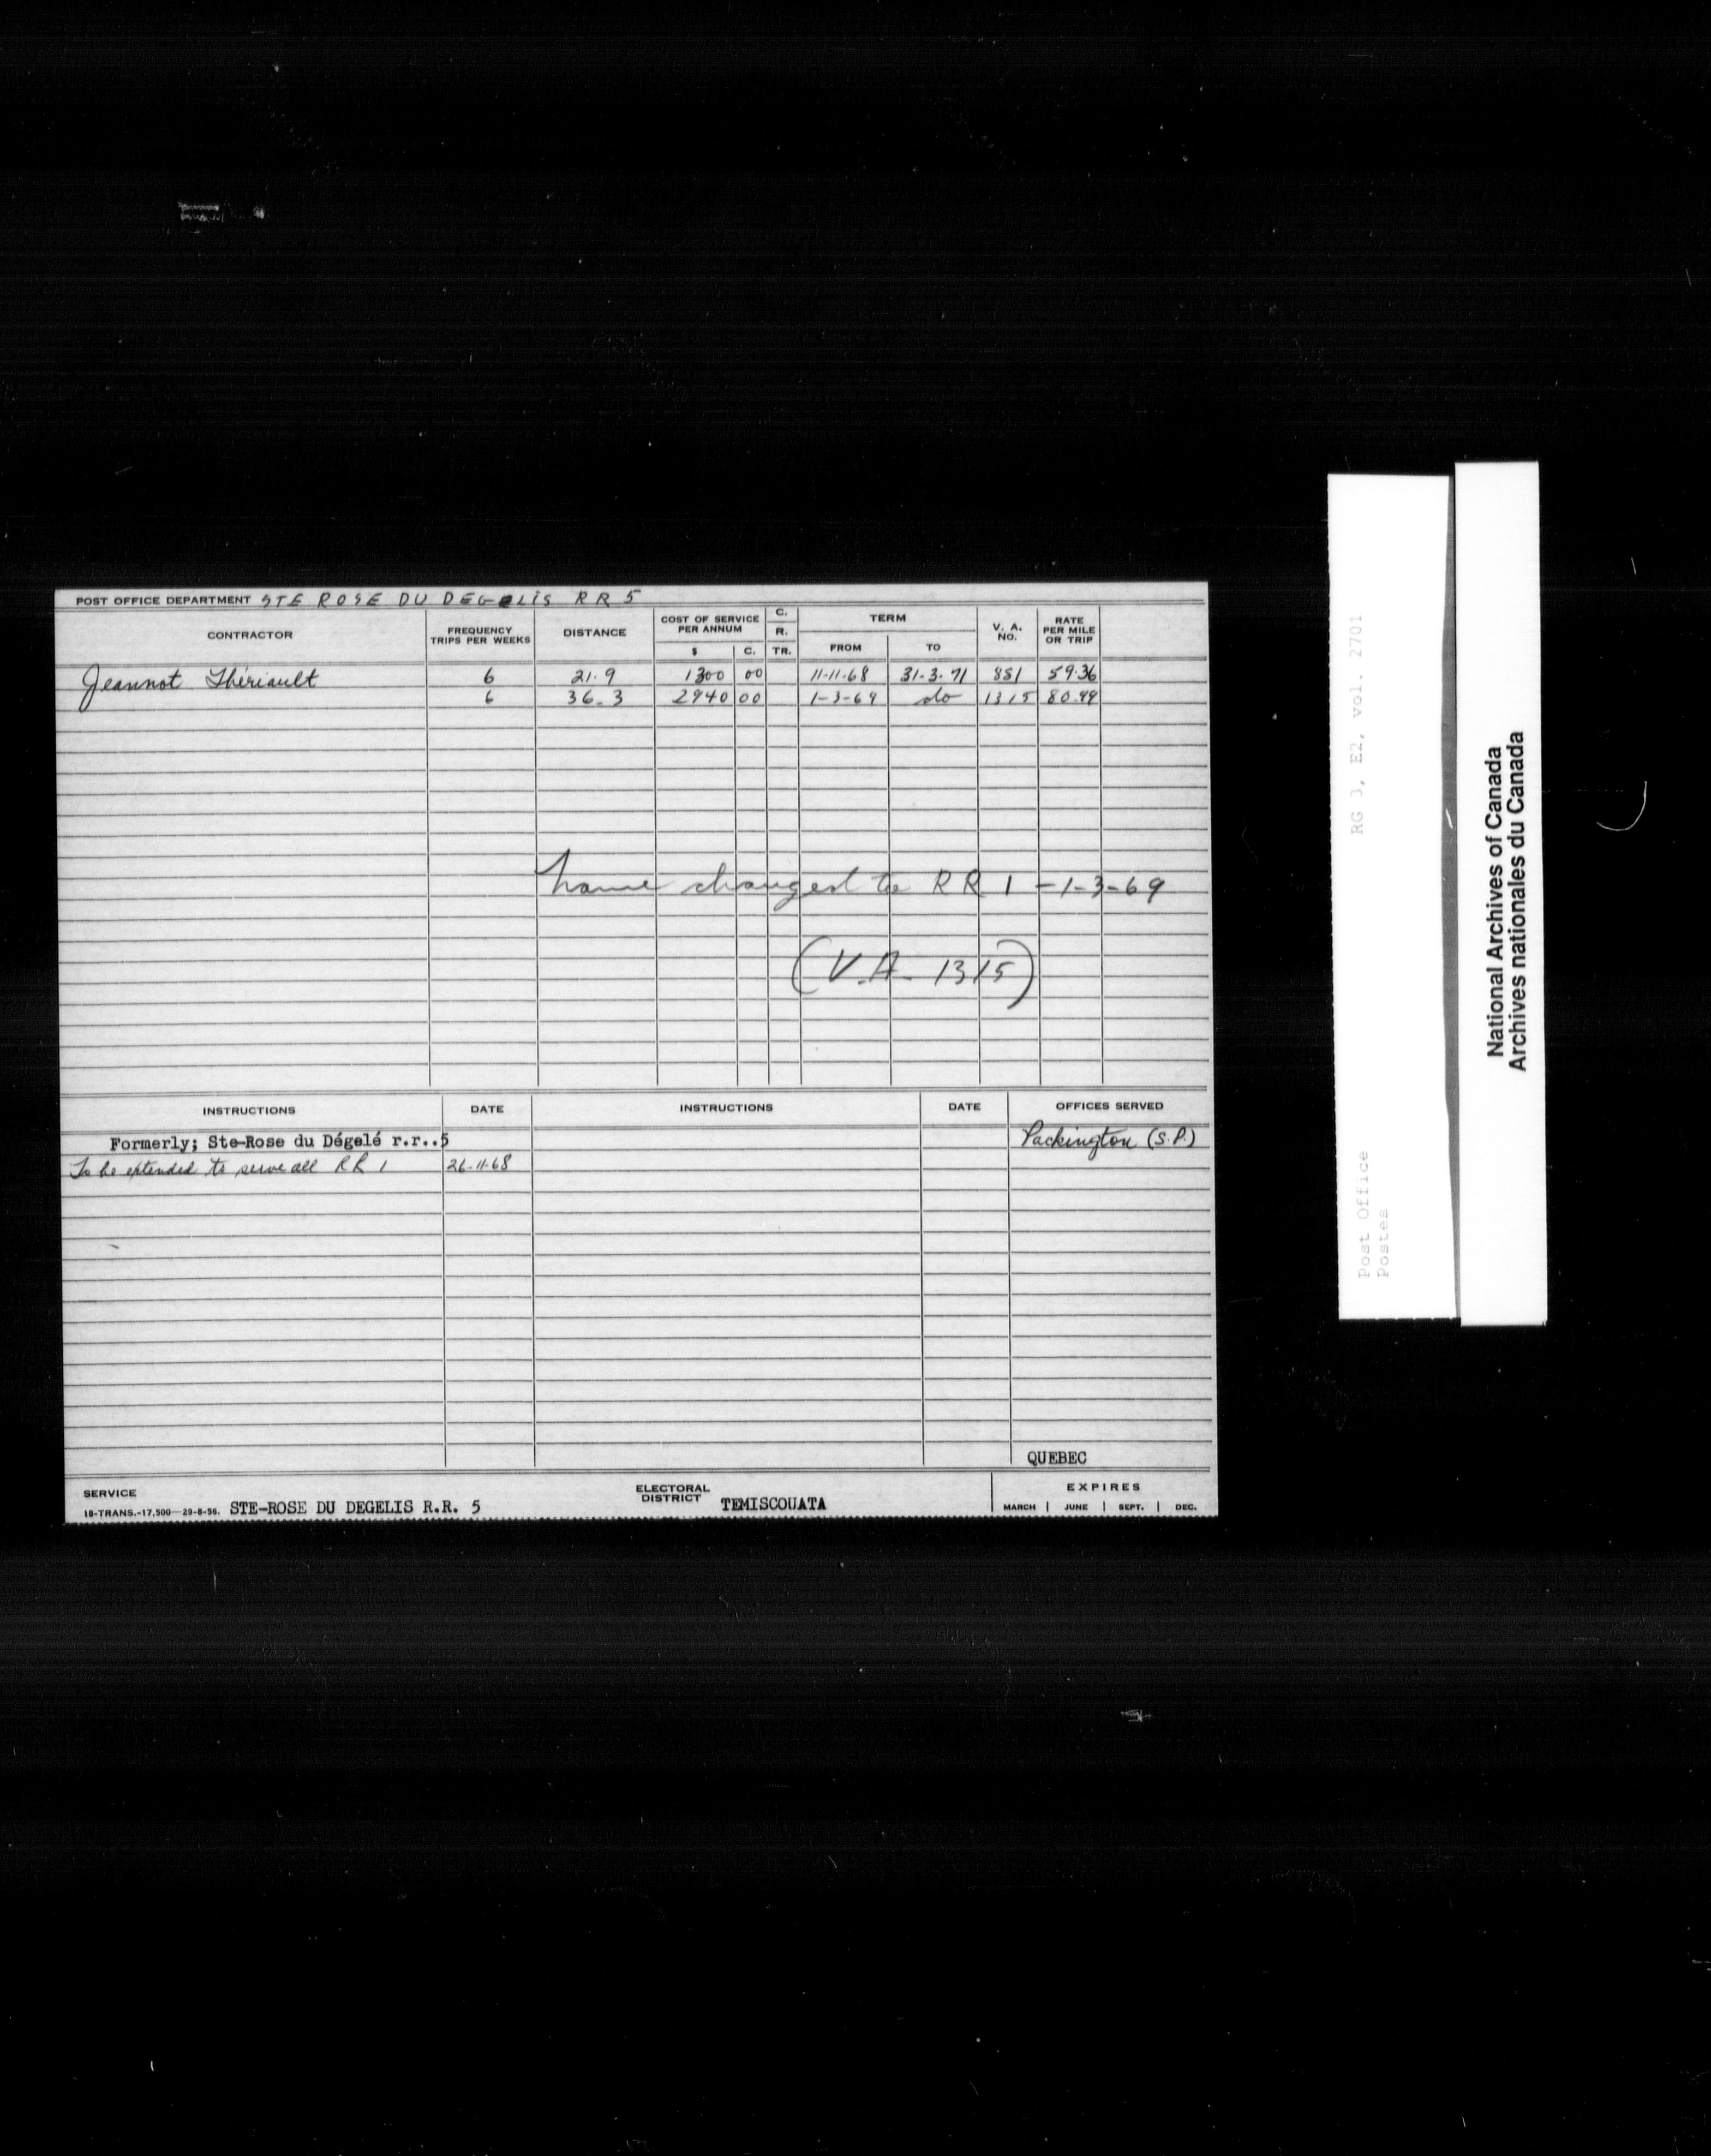 POST OFFICE DEPARTMENT STE ROSE DU DEGELIS RR 5
CONTRACTOR FREQUENCY TRIPS PER WEEKS DISTANCE COST OF SERVICE PER ANNUM $ C. C. R. TR. TERM FROM TO V. A. NO. RATE PER MILE OR TRIP
Jeannot Thériault 6 21.9 1300 00 11-11-68 31-3-71 851 59.36
6 36.3 2940 00 1-3-69 do 1315 80.99
name changed to RR 1 -1-3-69
(V.A. 1315)
INSTRUCTIONS DATE INSTRUCTIONS DATE OFFICES SERVED
Formerly; Ste-Rose du Dégelé r.r..5 Packington (S.P.)
To be extended to serve all RR 1 26-11-68
QUEBEC
SERVICE ELECTORAL DISTRICT EXPIRES
18-TRANS.-17,500-29-8-56. STE-ROSE DU DEGELIS R.R. 5 TEMISCOUATA MARCH | JUNE | SEPT. | DEC.
Post Office RG 3, E2, vol. 27701
Postes
National Archives of Canada
Archives nationales du Canada